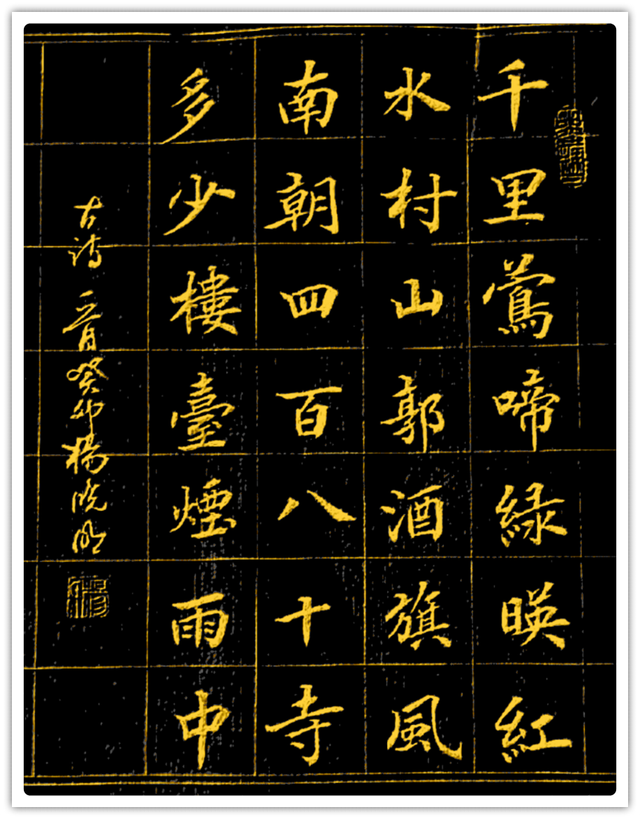 千里鶯啼綠暎紅
水村山郭酒旗風
南朝四百八十寺
多少樓臺煙雨中
古詩 二月癸卯楊曉明